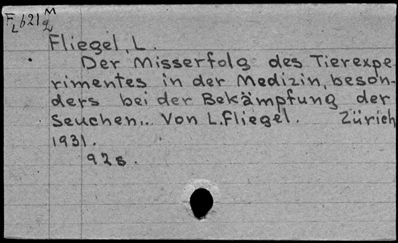 FLb21gM
Fliegel, L.
Der Misserfolg des Tierexpe-
rimentes in der Medizin, beson-
ders bei der Bekämpfung der
Seuchen... Von L. Fliegel. Zürich
1931.
92 s.